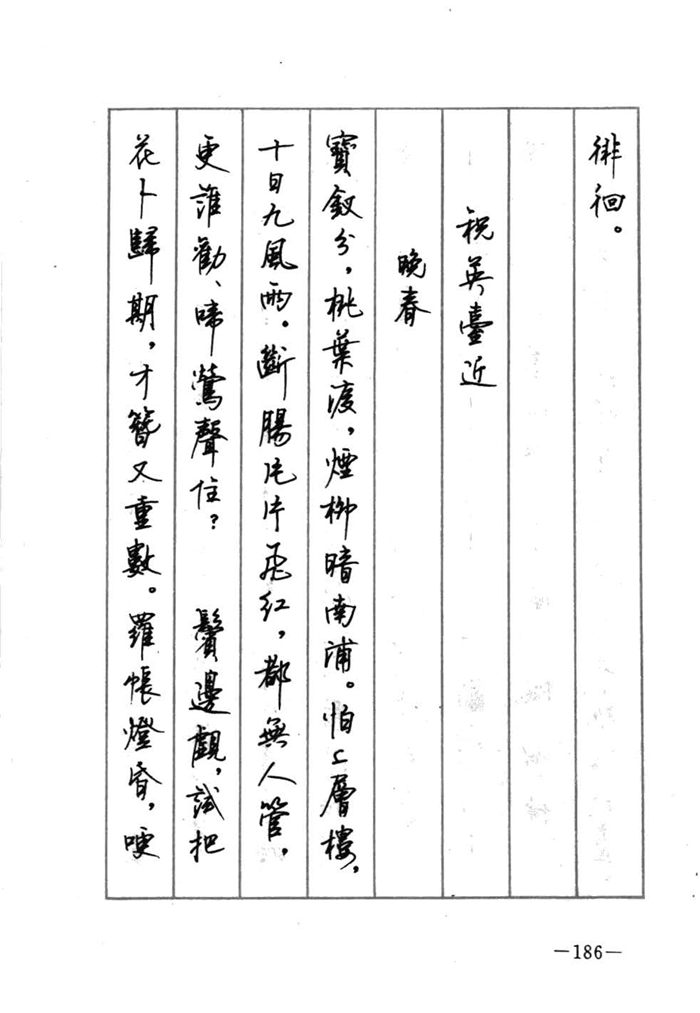 徘徊。
祝英臺近
晚春
寶釵分，桃葉渡，煙柳暗南浦。怕上層樓，
十日九風雨。斷腸片片飛紅，都無人管，
更誰勸、啼鶯聲住？　鬢邊覷，試把
花卜歸期，才簪又重數。羅帳燈昏，哽
—186—